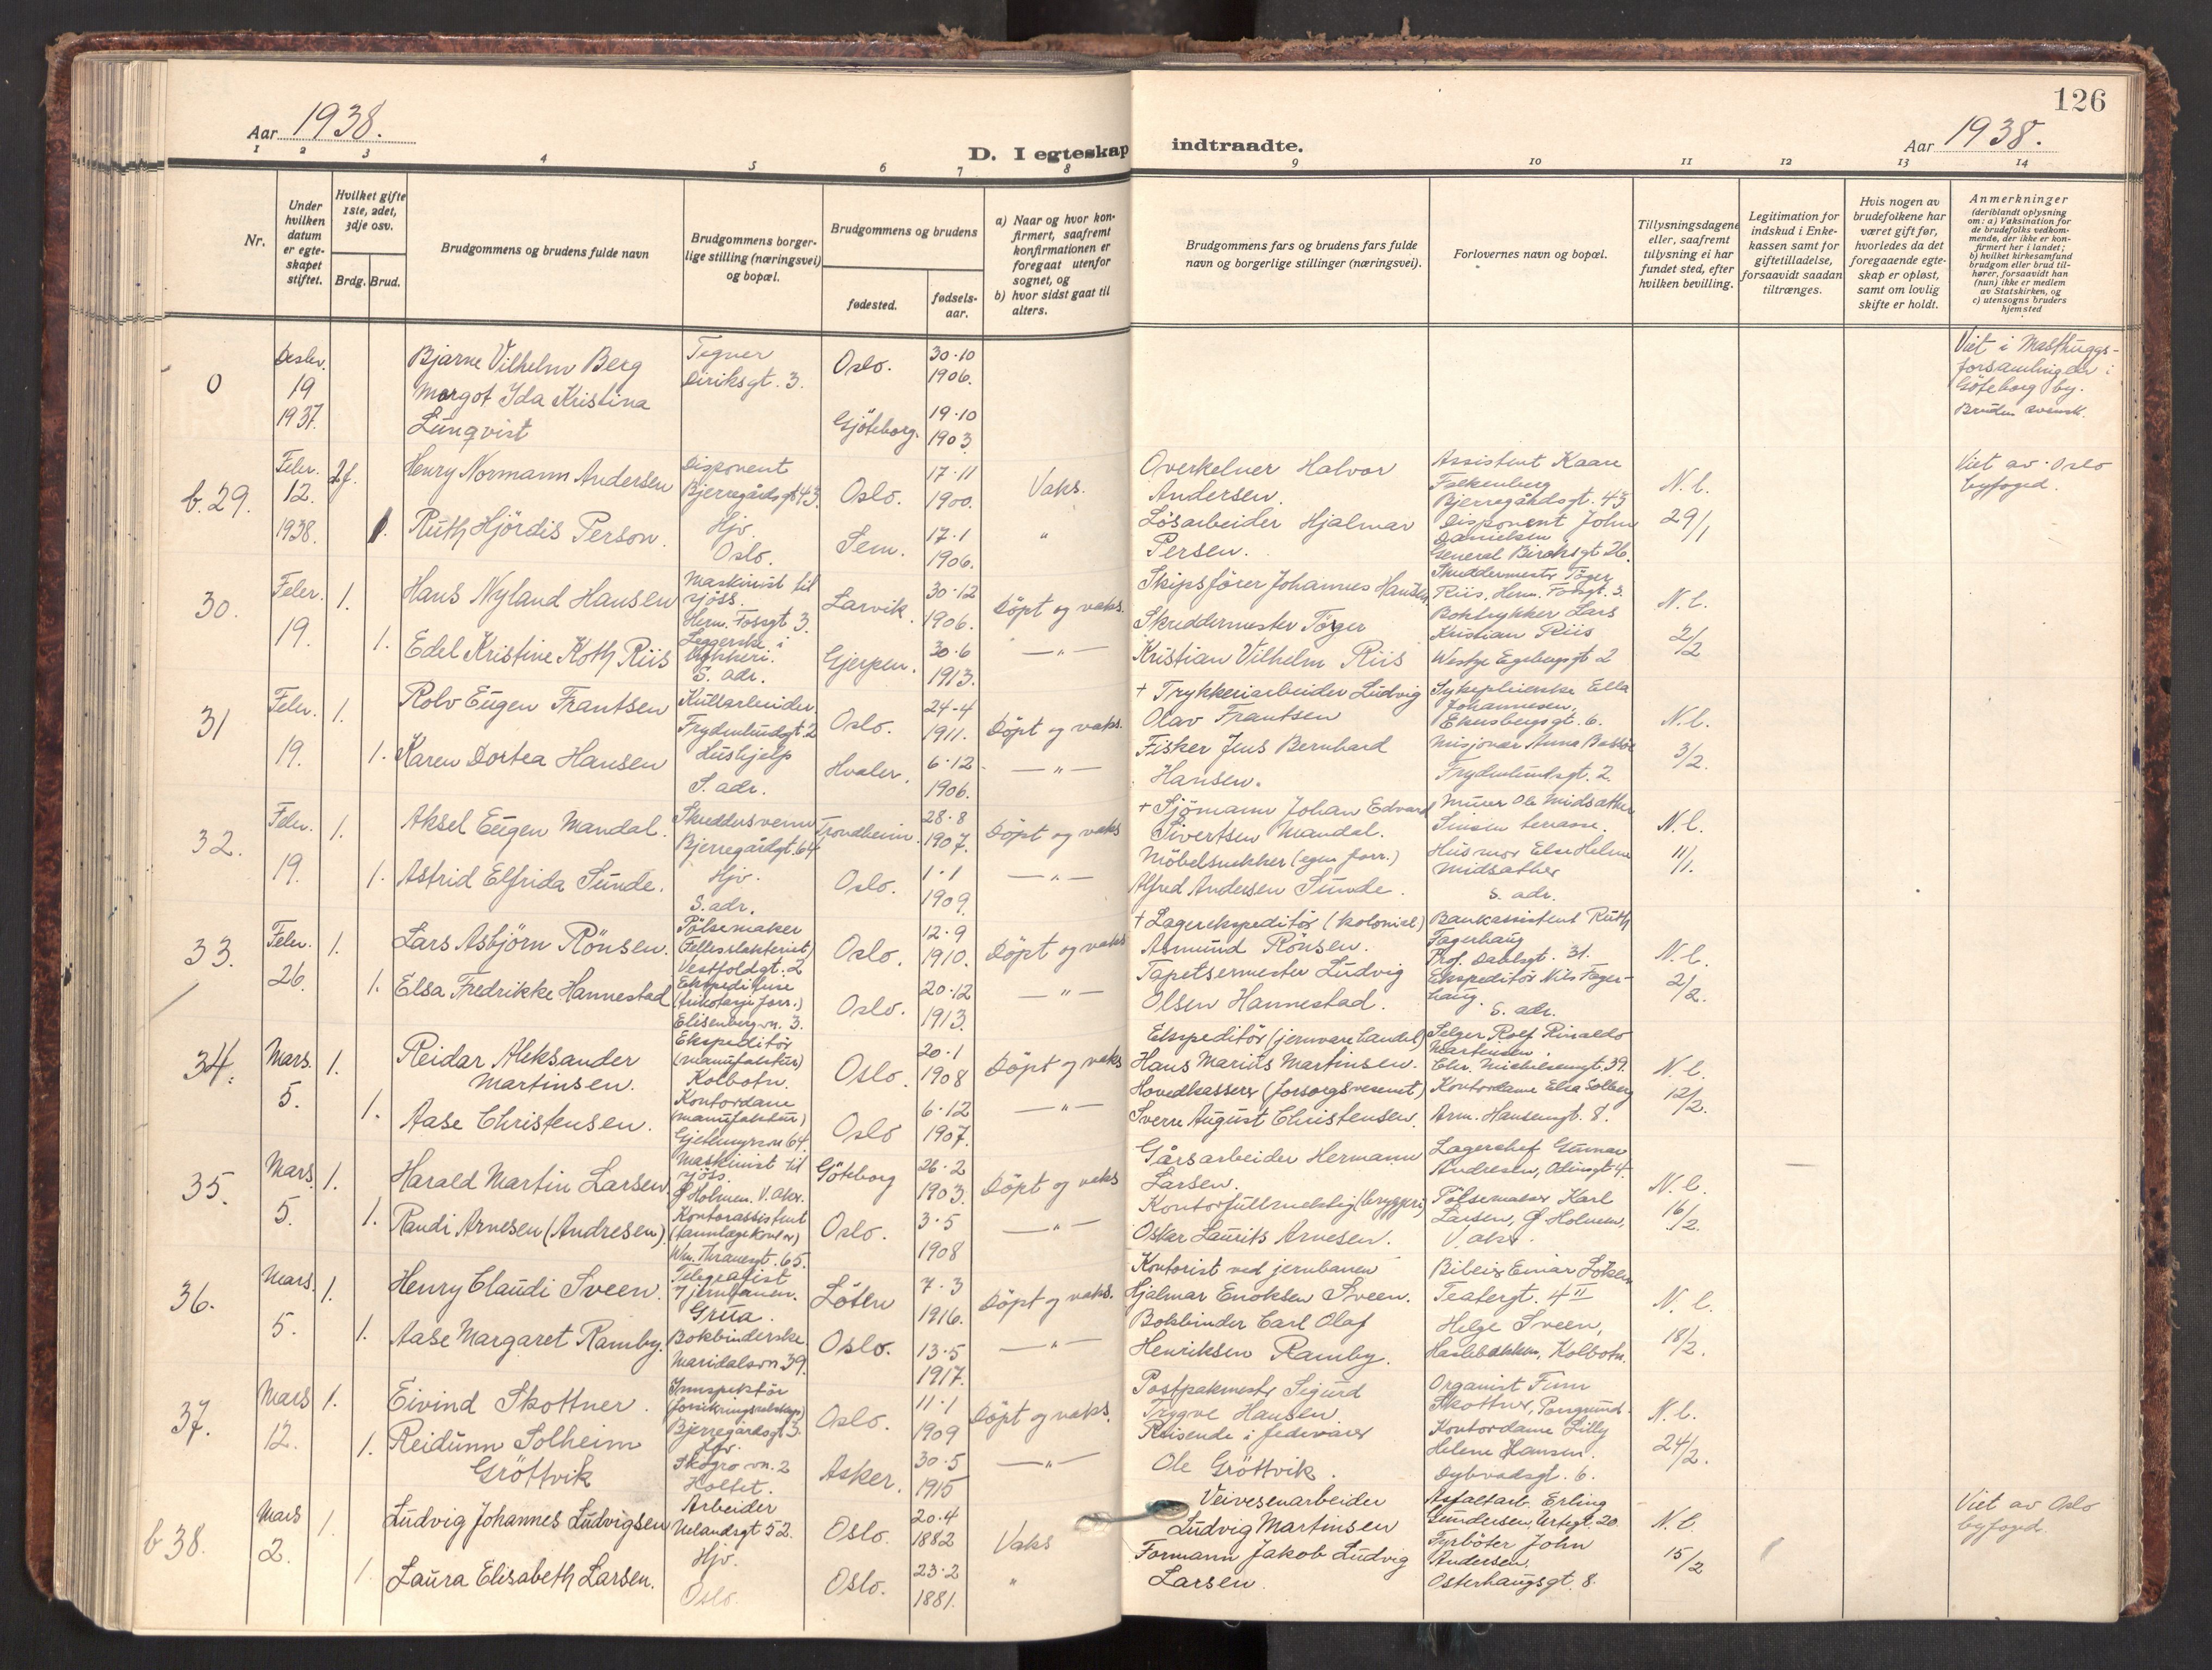 126
Aar 1938.
D. I egteskap indtraadte.
Aar 1938.
1 2 3 4 5 6 7 8 9 10 11 12 13 14
Nr.
Under hvilken datum er egte-skapet stiftet.
Hvilket gifte 1ste, 2det, 3dje osv.
Brdg. Brud.
Brudgommens og brudens fulde navn
Brudgommens borger-lige stilling (næringsvei) og bopæl.
Brudgommens og brudens
fødested.
fødsels-aar.
a) Naar og hvor kon-firmert, saafremt konfirmationen er foregaat utenfor sognet, og
b) hvor sidst gaat til alters.
Brudgommens fars og brudens fars fulde navn og borgerlige stillinger (næringsvei).
Forlovernes navn og bopæl.
Tillysningsdagene eller, saafremt tillysning ei har fundet sted, efter hvilken bevilling.
Legitimation for indskud i Enke-kassen samt for giftetilladelse, forsaavidt saadan tiltrænges.
Hvis nogen av brudefolkene har været gift før, hvorledes da det foregaaende egte-skap er opløst, samt om lovlig skifte er holdt.
Anmerkninger
(deriblandt oplysning om: a) Vaksination for de brudefolks vedkom-mende, der ikke er kon-firmert her i landet;
b) hvilket kirkesamfund brudgom eller brud til-hører, forsaavidt han (hun) ikke er medlem av Statskirken, og
c) utensogns bruders hjemsted
0
19
1937.
Bjarne Vilhelm Berg
Margot Ida Kristina
Lunqvist
Tegner
Diriksgt. 3.
Oslo.
Gjöteborg.
30-10
1906.
19-10
1903
Viet i Masthuggs-
forsamlingen i
Göteborg by.
Bruden svensk.
b. 29.
Febr.
12.
1938.
2f.
1.
Henry Normann Andersen
Ruth Hjördis Person.
Disponent
Bjerregårdsgt 43.
Hjv.
Oslo.
Oslo.
Sem.
17-11
1900.
17-1
1906.
Vaks.
"
Overkelner Halvor
Andersen.
Løsarbeider Hjalmar
Persen.
Assistent Kaare
Falkenberg
Bjerregårdsgt. 43
Disponent John
Danielsen
General Birchsgt 26.
N. l.
29/1
Viet av Oslo
byfoged.
30.
Febr.
19.
1.
1.
Hans Nyland Hansen
Edel Kristine Koth Riis
Maskinist til
sjöss.
Herm. Fossgt 3.
Leggerske i
S. adr.
Larvik
Gjerpen.
30-12
1906.
30-6
1913.
Döpt og vaks.
— " —
Skipsförer Johannes Hansen
Skreddermester Töger
Kristian Vilhelm Riis
Skreddermester Töger
Riis, Herm. Fossgt. 3.
Boktrykker Lars
Kristian Riis
Westye Egebergsgt 2
N. l.
2/2
31
Febr.
19.
1.
1.
Rolv Eugen Frantsen
Karen Dortea Hansen
Kullarbeider.
Frydenlundgt 2
Hushjelp
S. adr.
Oslo.
Hvaler.
24-4
1911.
6-12
1906.
Döpt og vaks.
— " —
+ Trykkeriarbeider Ludvig
Olav Frantsen
Fisker Jens Bernhard
Hansen.
Sykepleierske Ella
Johannesen,
Ekersbergsgt. 6.
Misjonær Anna
Frydenlundsgt. 2.
N. l.
3/2.
32.
Febr.
19.
1.
1.
Aksel Eugen Mandal.
Astrid Elfrida Sunde.
Skreddersvenn
Bjerregårdgt. 64
Hjv.
S. adr.
Trondheim.
Oslo.
28-8
1907.
1-1
1909.
Döpt og vaks
— " —
+ Sjömann Johan Edvard
Sivertsen Mandal.
Möbelsnekker (egen forr.)
Alfred Andersen Sunde.
Murer Ole Midsæther
Sinsen terrasse.
Husmor Else Helene
Midsæther
S. adr.
N. l.
11/1.
33.
Febr.
26.
1.
1.
Lars Asbjörn Rönsen.
Elsa Fredrikke Hannestad
Pölsemaker
(Fellesslakteriet)
Vestfoldgt. 2
Ekspeditrise
(trikotasje forr.)
Elisenberg vn. 3.
Oslo.
Oslo.
12-9
1910.
20-12
1913.
Döpt og vaks
— " —
+ Lagerekspeditör (kolonial)
Asmund Rönsen.
Tapetsermester Ludvig
Olsen Hannestad.
Bankassistent Ruth
Fagerhaug
Prof. Dahlsgt. 31.
Ekspeditör Nils Fager-
haug.
S. adr.
N. l.
2/2.
34.
Mars.
5.
1.
1.
Reidar Aleksander
Martinsen.
Aase Christensen.
Ekspeditör
(manufaktur)
Kolbotn.
Kontordame
(manufaktur)
Gjetemyrsvn 64.
Oslo.
Oslo
20-1
1908
6-12
1907.
Döpt og vaks
— " —
Ekspeditör (jernvare handel)
Hans Marius Martinsen.
Hovedkasserer (forsorgsvesenet)
Sverre August Christensen.
Selger Rolf Rinaldo
Martinsen.
Chr. Michelsensgt. 39.
Kontordame Elsa Solberg
Arm. Hansensgt. 8.
N. l.
12/2.
35.
Mars.
5.
1.
1.
Harald Martin Larsen.
Randi Arnesen (Andresen).
Maskinist til
sjöss.
Holmen. V. Aker.
Kontorassistent
(tannlægekontor)
Wm. Thranesgt. 65.
Göteborg
Oslo.
26-2
1903.
3-5
1908
Döpt og vaks
— " —
Gårsarbeider Hermann
Larsen.
Kontorfullmektig (bryggeri)
Oskar Laurits Arnesen.
Lagerchef Gunnar
Andresen, Odinsgt 4.
Pölsemaker Karl
Larsen, Holmen,
V. aker.
N. l.
16/2.
36.
Mars.
5.
1.
1.
Henry Claudi Sveen.
Aase Margaret Ramby.
Telegrafist
v jernbanen.
Grua.
Bokbinderske
Maridalsvn 39.
Löten
Oslo.
7-3
1916.
13-5
1917.
Döpt og vaks.
— " —
Kontorist ved jernbanen
Hjalmar Enoksen Sveen.
Bokbinder Carl Olaf
Henriksen Ramby.
Bileier Einar Löken
Teatergt. 4 II
Helge Sveen,
Kolbotn.
N. l.
18/2.
37.
Mars
12.
1.
1.
Eivind Skottner.
Reidunn Solheim
Gröttvik
Innspektör
(forsikringsselskap)
Bjerregårdsgt 3.
Hjv.
Skogro vn. 2
Holtet.
Oslo.
Asker.
11-1
1909
30-5
1915
Döpt og vaks.
— " —
Postpakmester Sigurd
Trygve Hansen.
Reisende i fedevarer
Ole Gröttvik.
Organist Finn
Skottner, Porsgrund.
Kontordame Lilly
Helene Hansen.
Dybvadsgt. 6.
N. l.
24/2.
b 38.
Mars
2.
1.
1.
Ludvig Johannes Ludvigsen
Laura Elisabeth Larsen.
Arbeider
Uelandsgt 52.
Hjv.
Oslo.
Oslo.
Oslo.
20-4
1882
23-2
1881.
Vaks
"
Veivesenarbeider
Ludvig Martinsen
Formann Jakob Ludvig
Larsen.
Asfaltarb. Erling
Gundersen, Urtegt. 20.
Fyrböter John
Andersen.
Osterhausgt. 8.
N. l.
15/2
Viet av Oslo
byfoged.